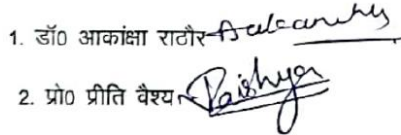 1. डॉ0 आकांक्षा राठौर
2. प्रो0 प्रीति वैश्य